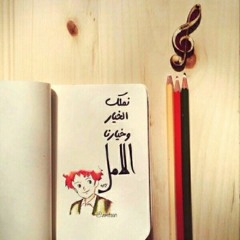 نملك
الخيار
وخيارنا
الأمل